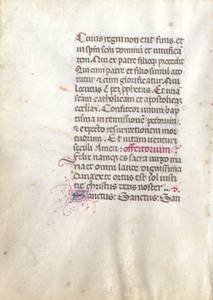 Cuius regni non erit finis. et
in spm scm dominu et uiuifica
tem. Qui ex patre filioqz procedit
Qui cum patre et filio simul ado
ratur et conglorificatur. Qui
locutus e per pphetas. Et unam
sanctam catholicam et apostolicaz
ecclesia. Confiteor unum bap
tisma in remissionem peccatorum.
et expecto resurrectionem mortu
orum. Et uitam uenturi
seculi. Amen. offertorium.
Felix namqz es sacra uirgo ma
ria et omni laude dignissima
Quia ex te ortus est sol iusti
tie christus deus noster
Sanctus. Sanctus. San